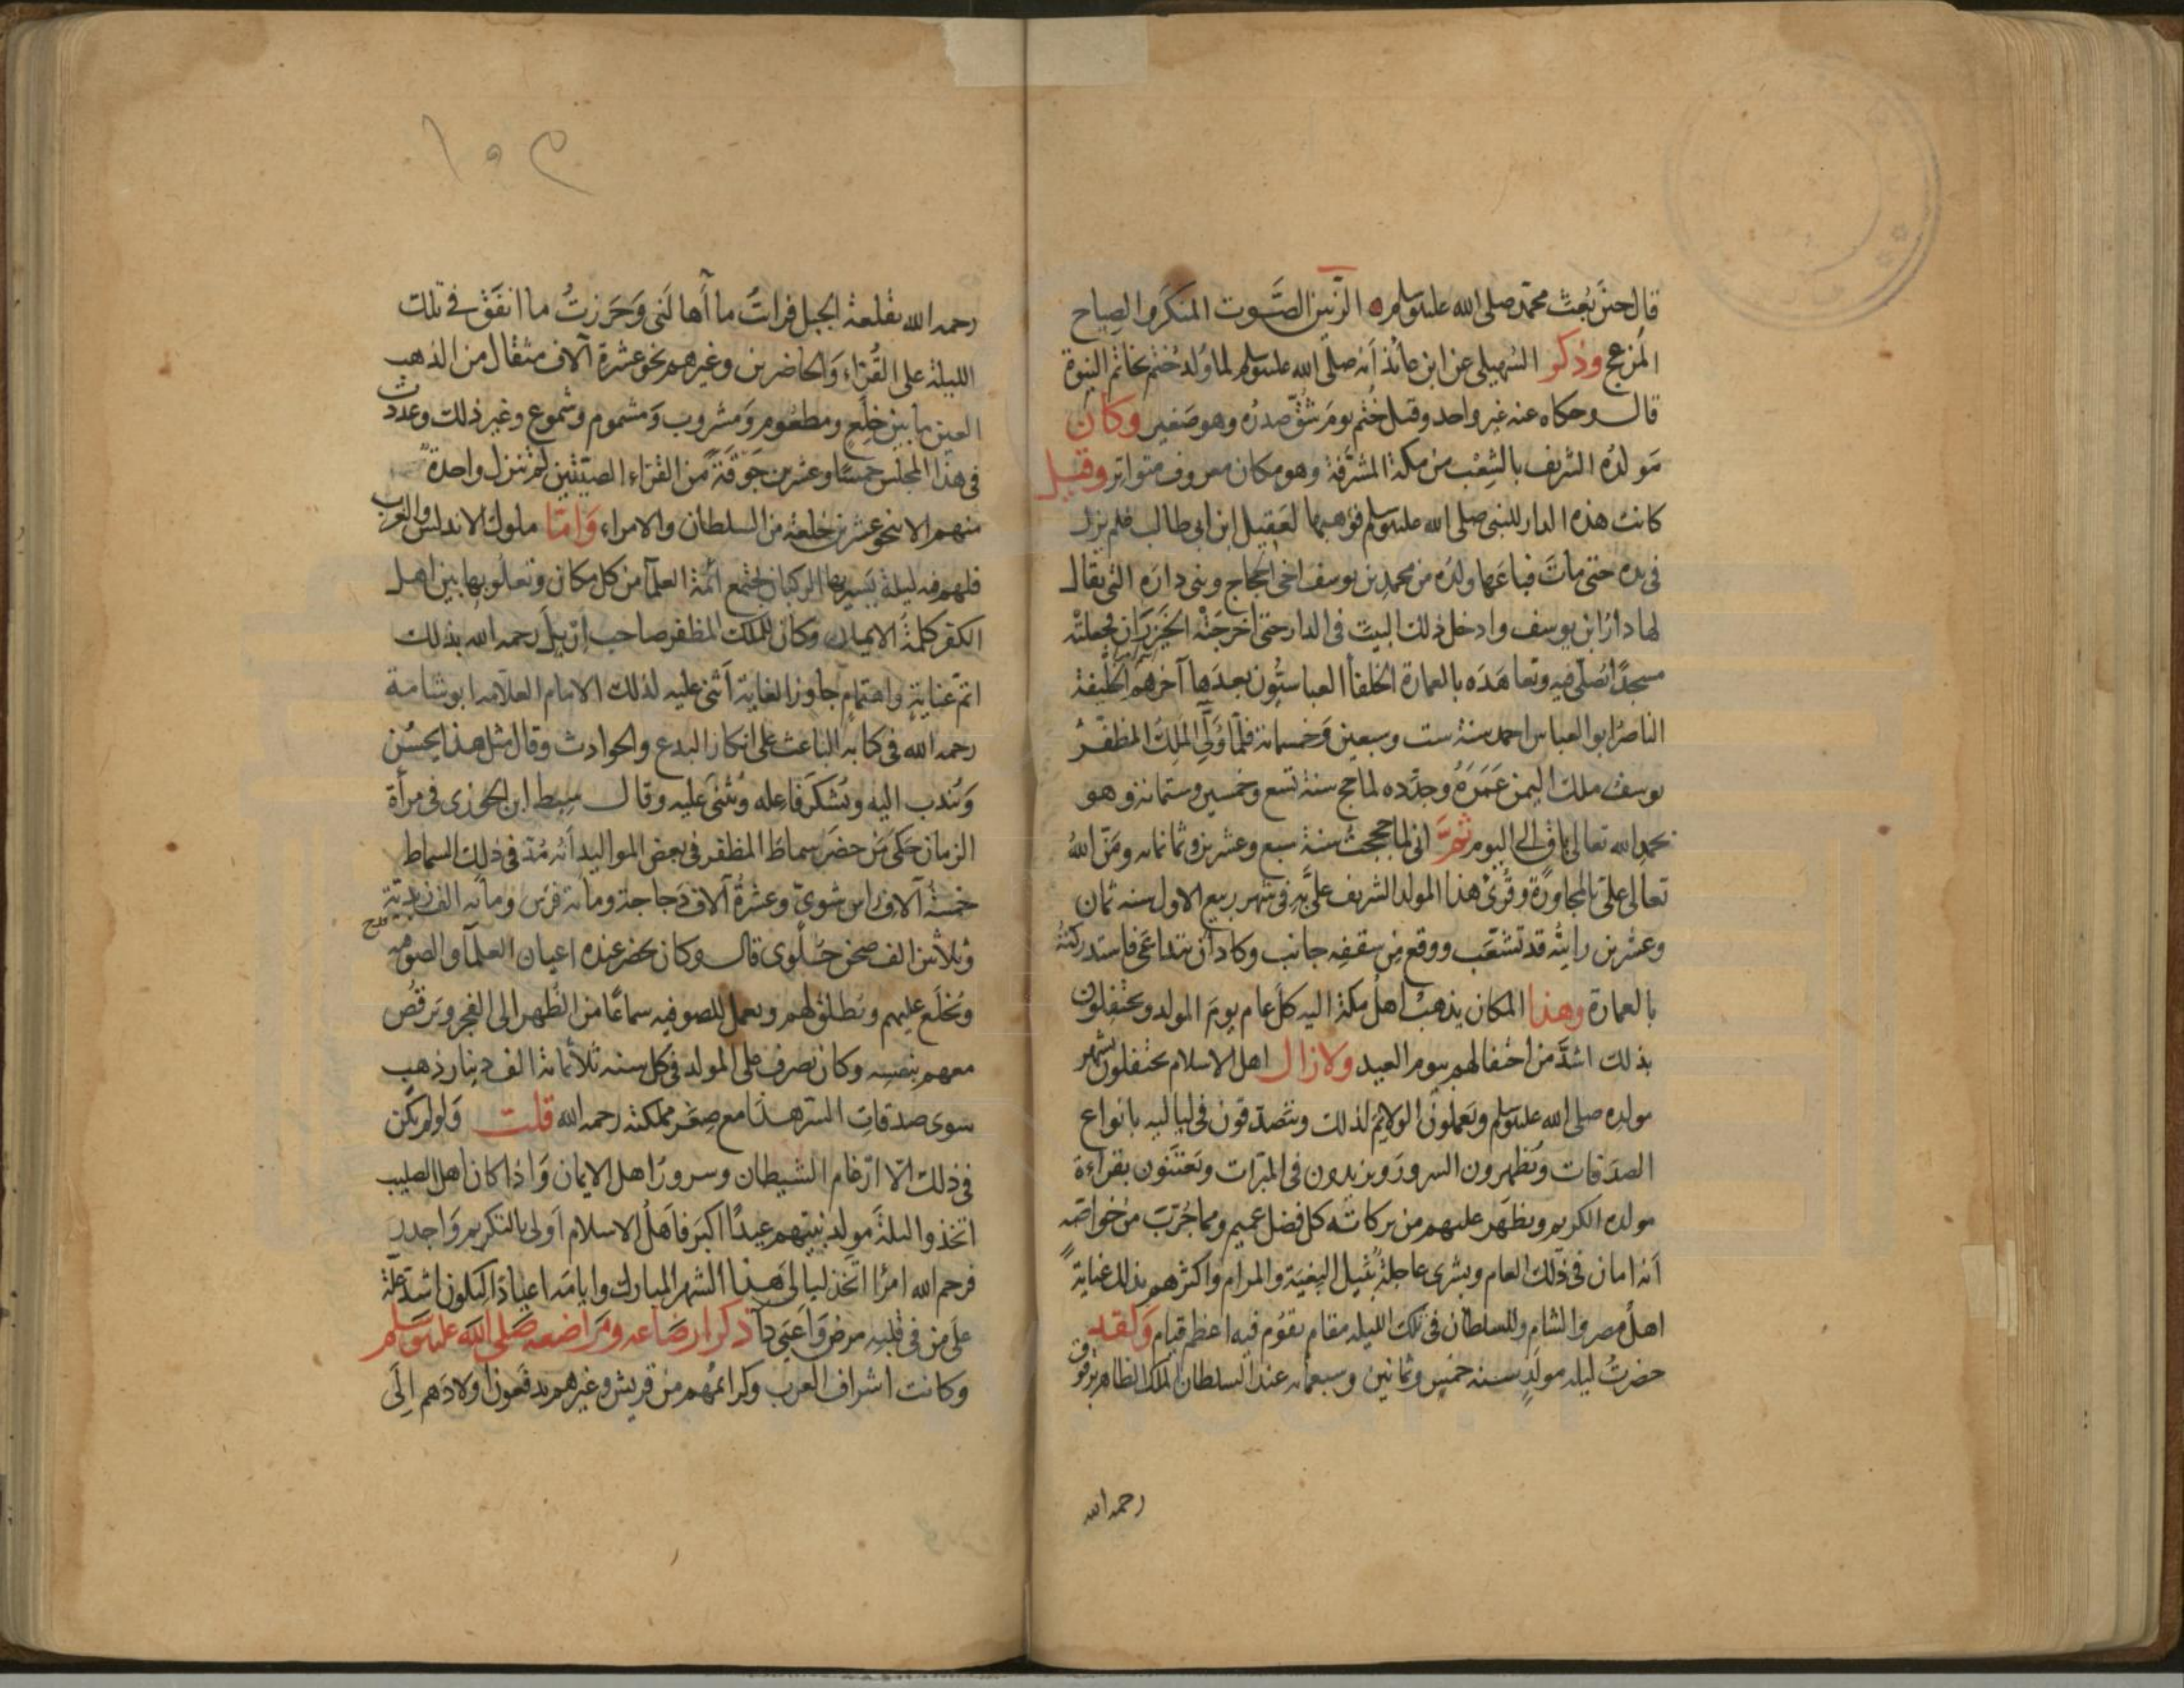 قال حين بُعث محمّد صلى الله عليه وسلم ه الرَّنين الصَّوت المنكر والصِياح
المُزعج وذكر السُهيلى عن ابن عائذ أنه صلّى الله عليه وسلم لما وُلد خُتم بخاتم النبوة
قال وحكاه عنه غير واحد وقيل خُتم يوم شُقّ صدرُه وهو صَغير وكان
مَولدُه الشريف بالشِعْب من مكة المشرَّفة وهو مكان معروف متواتر وقيل
كانت هذه الدار للنبى صلى الله عليه وسلم فوَهبها لعَقِيل ابن ابى طالب فلم يزل
فى يده حتى ماتَ فباعَها ولدُه من محمد بن يوسف اخى الحجاج وبنى دارَه التى يقال
لها دارُ ابن يوسف وادخل ذلك البيتَ فى الدار حتى أخرجَتْه الخيْزُرَان فجعلتْه
مسجدًا يُصلّى فيه وتعاهَدَه بالعمارة الخلفأ العباسيُّون بعدَها آخرهم الخليفة
الناصرُ ابو العباس احمد سنة ست وسبعين وَخمسمائة فلمّا وَلِّي المَلِكُ المظفّرُ
يوسف ملك اليمن عَمَرَهُ وجدَّده لما حج سنة تسع وخمسين وستمائة وهو
بحمد الله تعالى باقٍ الى اليوم ثمَّ انى لما حججتُ سنة سبع وعشرين وثمانمائه ومَنّ اللهُ
تعالى علىّ بالمجاورَة وقُرِئَ هذا المولد الشريف علىَّ به فى شهر ربيع الاول سنه ثمان
وعشرين رايتُه قد تشعَّب ووقع مِن سقفِه جانب وكاد أن يتداعَى فاستدركتُه
بالعمارة وهذا المكان يذهبُ اهلُ مكة اليه كلَّ عام يومَ المولد ويحتفِلون
بذلك اشدَّ من احتفالهم بيوم العيد ولازال اهل الاسلام يحتفلون بشهر
مولده صلى الله عليه وسلم ويَعملونَ الولايمَ لذلك ويتَصدّقون فى لياليه بانواع
الصدَقات ويُظهرون السرورَ ويزيدون فى المبرّات ويَعتَنُون بقراءة
مولده الكريم ويظهَر عليهم من بركاته كل فضل عميم ومما جُرّبَ من خواصّه
أنه امان فى ذلك العام وبشرى عاجلة بنَيل البغيَة والمرام واكثرهم بذلك عنايةً
اهلُ مصر والشام وللسلطان فى تلك الليله مقام يقوُم فيه اعظم قيام وَلقد
حضرتُ ليله مولدٍ سنه خمسٍ وثمانين وسبعمائه عند السلطان الملك الظاهر برقوق
رحمه الله
١٥٣
رحمه الله بقلعة الجبل فرأيتُ ما أَهالَنى وَحَرزتُ ما انفَق فى تلك
الليلة على القُرّاء وَالحاضرين وغيرهم نحو عشرة آلاف مثقال من الذهب
العين ما بين خِلَع ومطعُوم وَمشروب وَمشموم وشموع وغير ذلك وعددتُ
فى هذا المجلس خمسًا وعشرين جَوقةً من القرّاء الصيّتين لم تنزل واحدةٌ
منهم الا بنحو عشرين خلعة من السلطان والامراء وَامّا ملوك الاندلس والغرب
فلهم فيه ليلة يَسير بها الركبان يجتمع أئمة العلمآ من كل مكان وتعلُو بها بين اهل
الكفر كلمةُ الايمان وكان للملك المظفر صاحب اربِل رحمه الله بذلك
اتمّ عناية واهتمام جاوز الغاية أَثنى عليه لذلك الامام العلامه ابو شامة
رحمه الله فى كتابه الباعث على انكار البدع والحوادث وقال مثل هذا يحسُن
وَيُندب اليه ويُشكَر فَاعله ويُثنى عليه وقال سِبط ابن الجوزى فى مرأة
الزمان حَكى مَن حضَر سماطَ المظفر فى بعض المواليد أنه مَدّ فى ذلك السماط
خمسة آلاف راس شوىّ وعشرةُ آلاف دَجاجة ومائة فرَس ومائه الف زبدية
وثلاثين الف صحن حَلْوى قال وكان يحضر عنده اعيان العلمآ والصوفيه
ويُخلَع عليهم ويُطلق لهم ويعمل للصوفيه سماعًا من الظهر الى الفجر وَيَرقُصُ
معهم بنفسِه وكان يصرف على المولد فى كل سنه ثلاثمائة الف دينار ذهب
سوى صدقاتِ السرّ هذا مع صِغَر مملكته رحمه الله قلت وَلو لم يكن
فى ذلك الّا ارغام الشيطان وسرورُ اهل الايمان وَاذا كان اهل الصليب
اتخذوا ليلةَ مَولد نبيّهم عيدًا اكبر فأَهلُ الاسلام أَولى بالتكريم وَاجدر
فرحم الله امرًا اتخذ ليالى هذا الشهر المبارك وايامَه اعيادًا ليكون اشدّ علة
على من فى قلبه مرض وَاعيى دآ ذكر ارضاعه ومَراضعه صلى الله عليه وسلم
وكانت اشراف العرب وكرائمهم من قريش وغيرهم يدفعون اولادَهم اِلَى